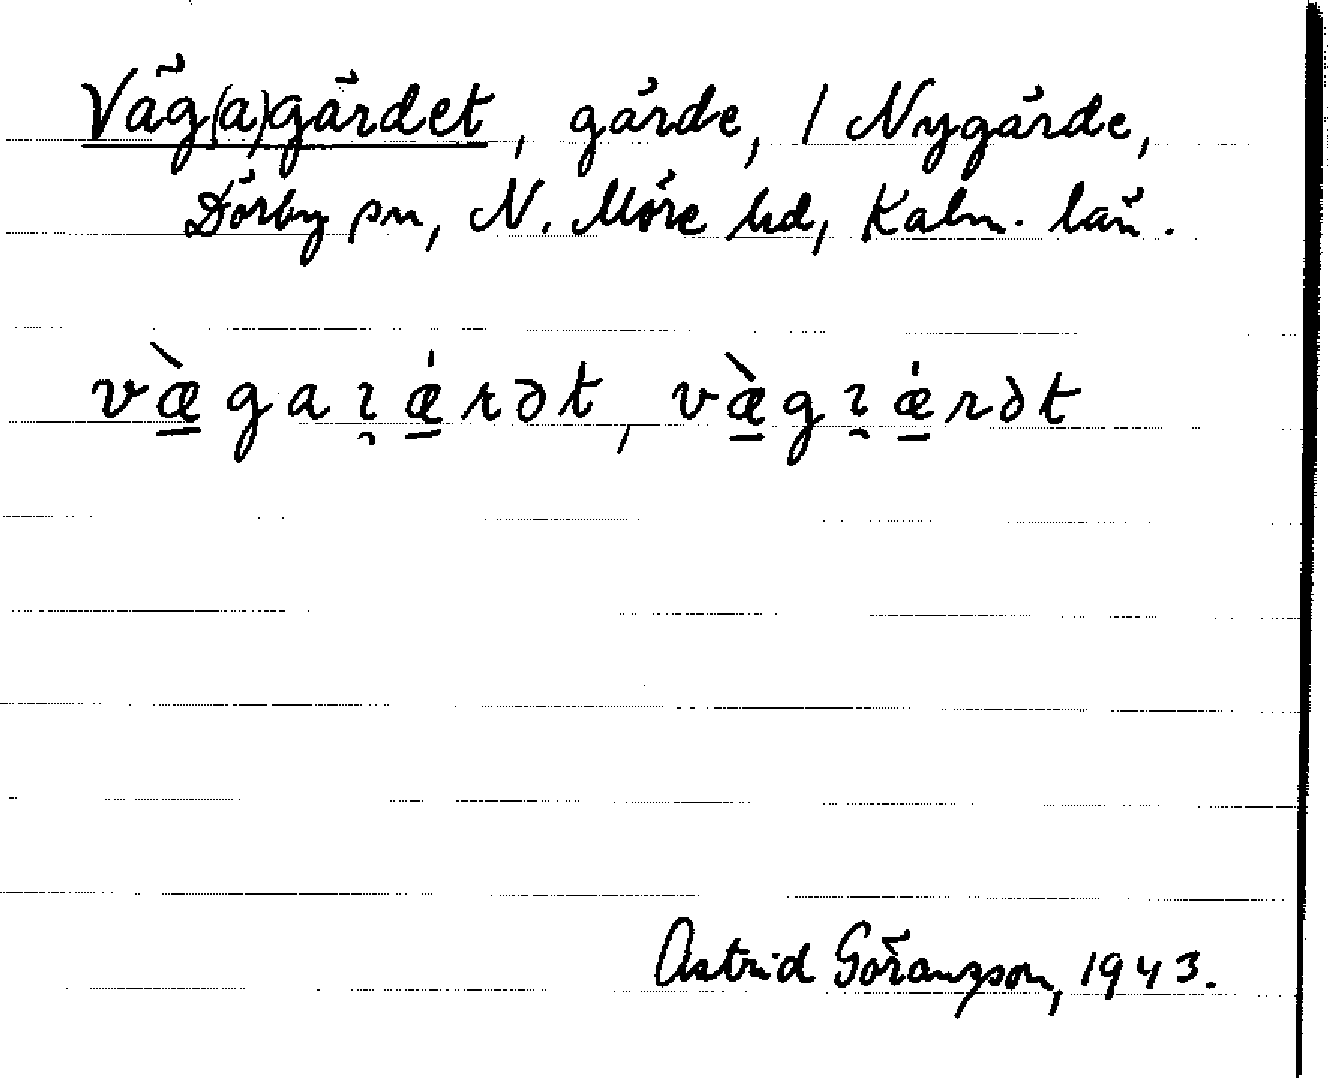 Väg(a)gärdet, gärde, / Nygärde,
Dörby sn, N. Möre hd, Kalm. län.
væ̠̀gaʅǽ̠rət, væ̠̀gʅǽ̠rət
Astrid Göranzson, 1943.